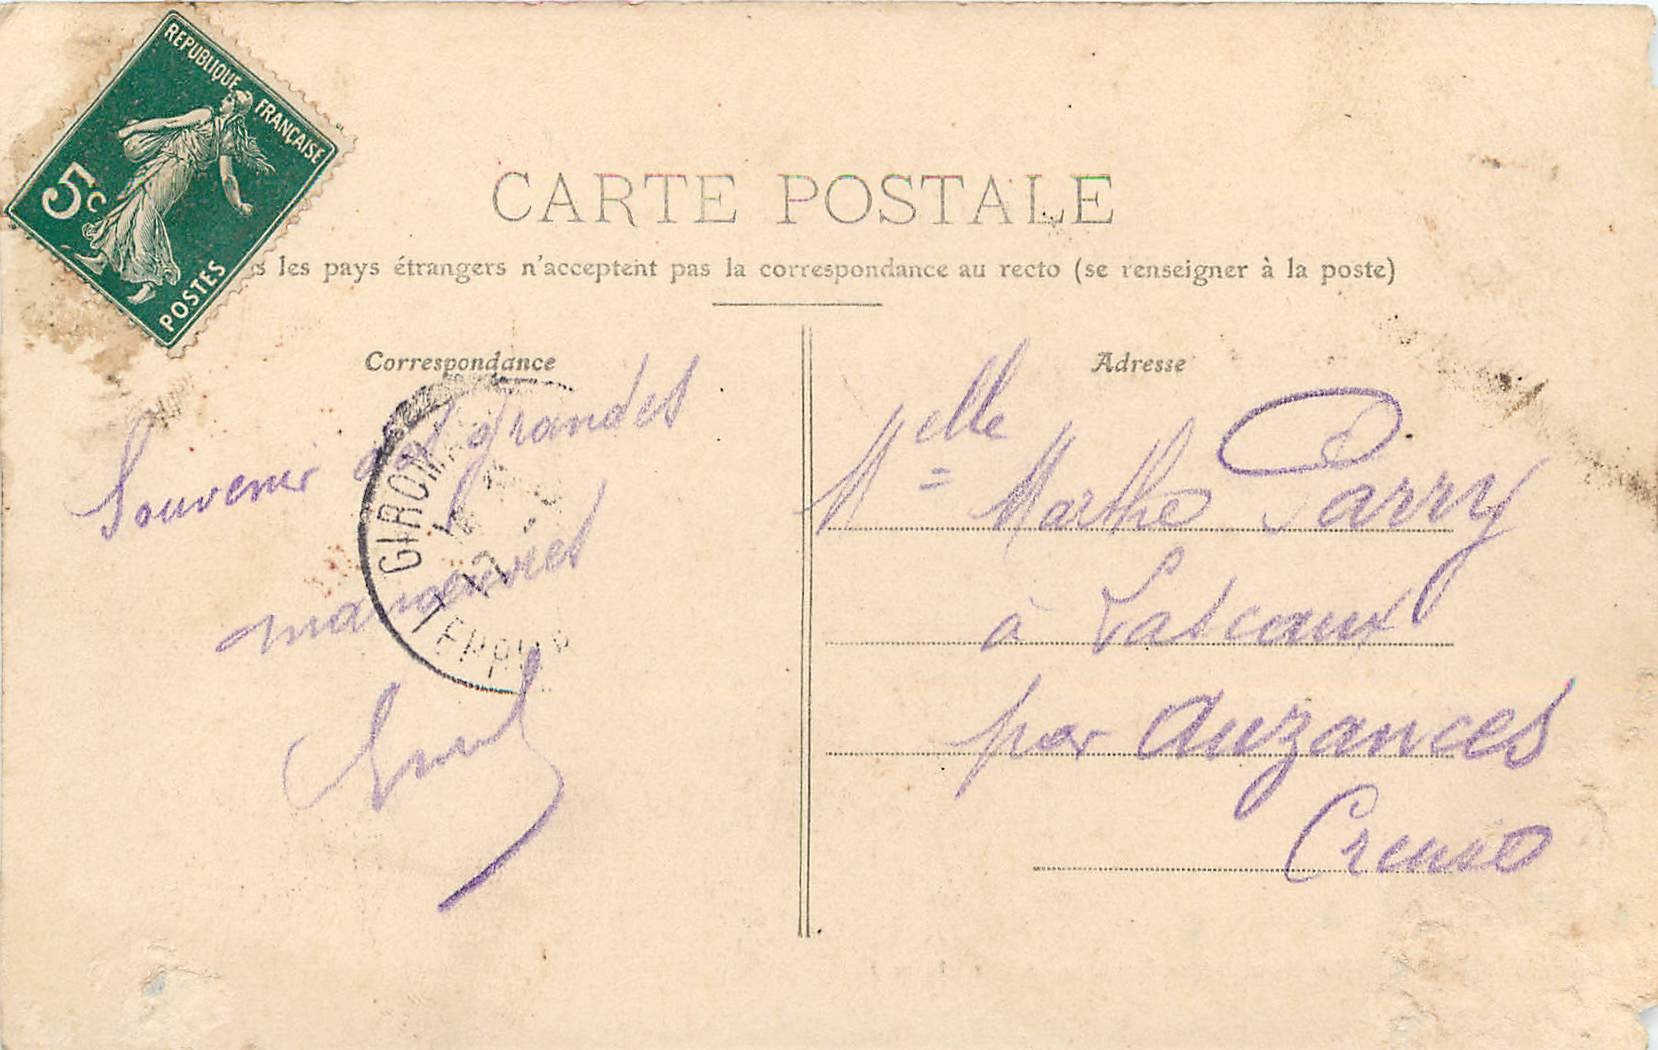 REPUBLIQUE FRANÇAISE
5c
POSTES
CARTE POSTALE
les pays étrangers n'acceptent pas la correspondance au recto (se renseigner à la poste)
Correspondance
Souvenir des grandes
manœuvres
GIROM
Adresse
Melle Marthe Parry
à Lascaux
par Auzances
Creuse